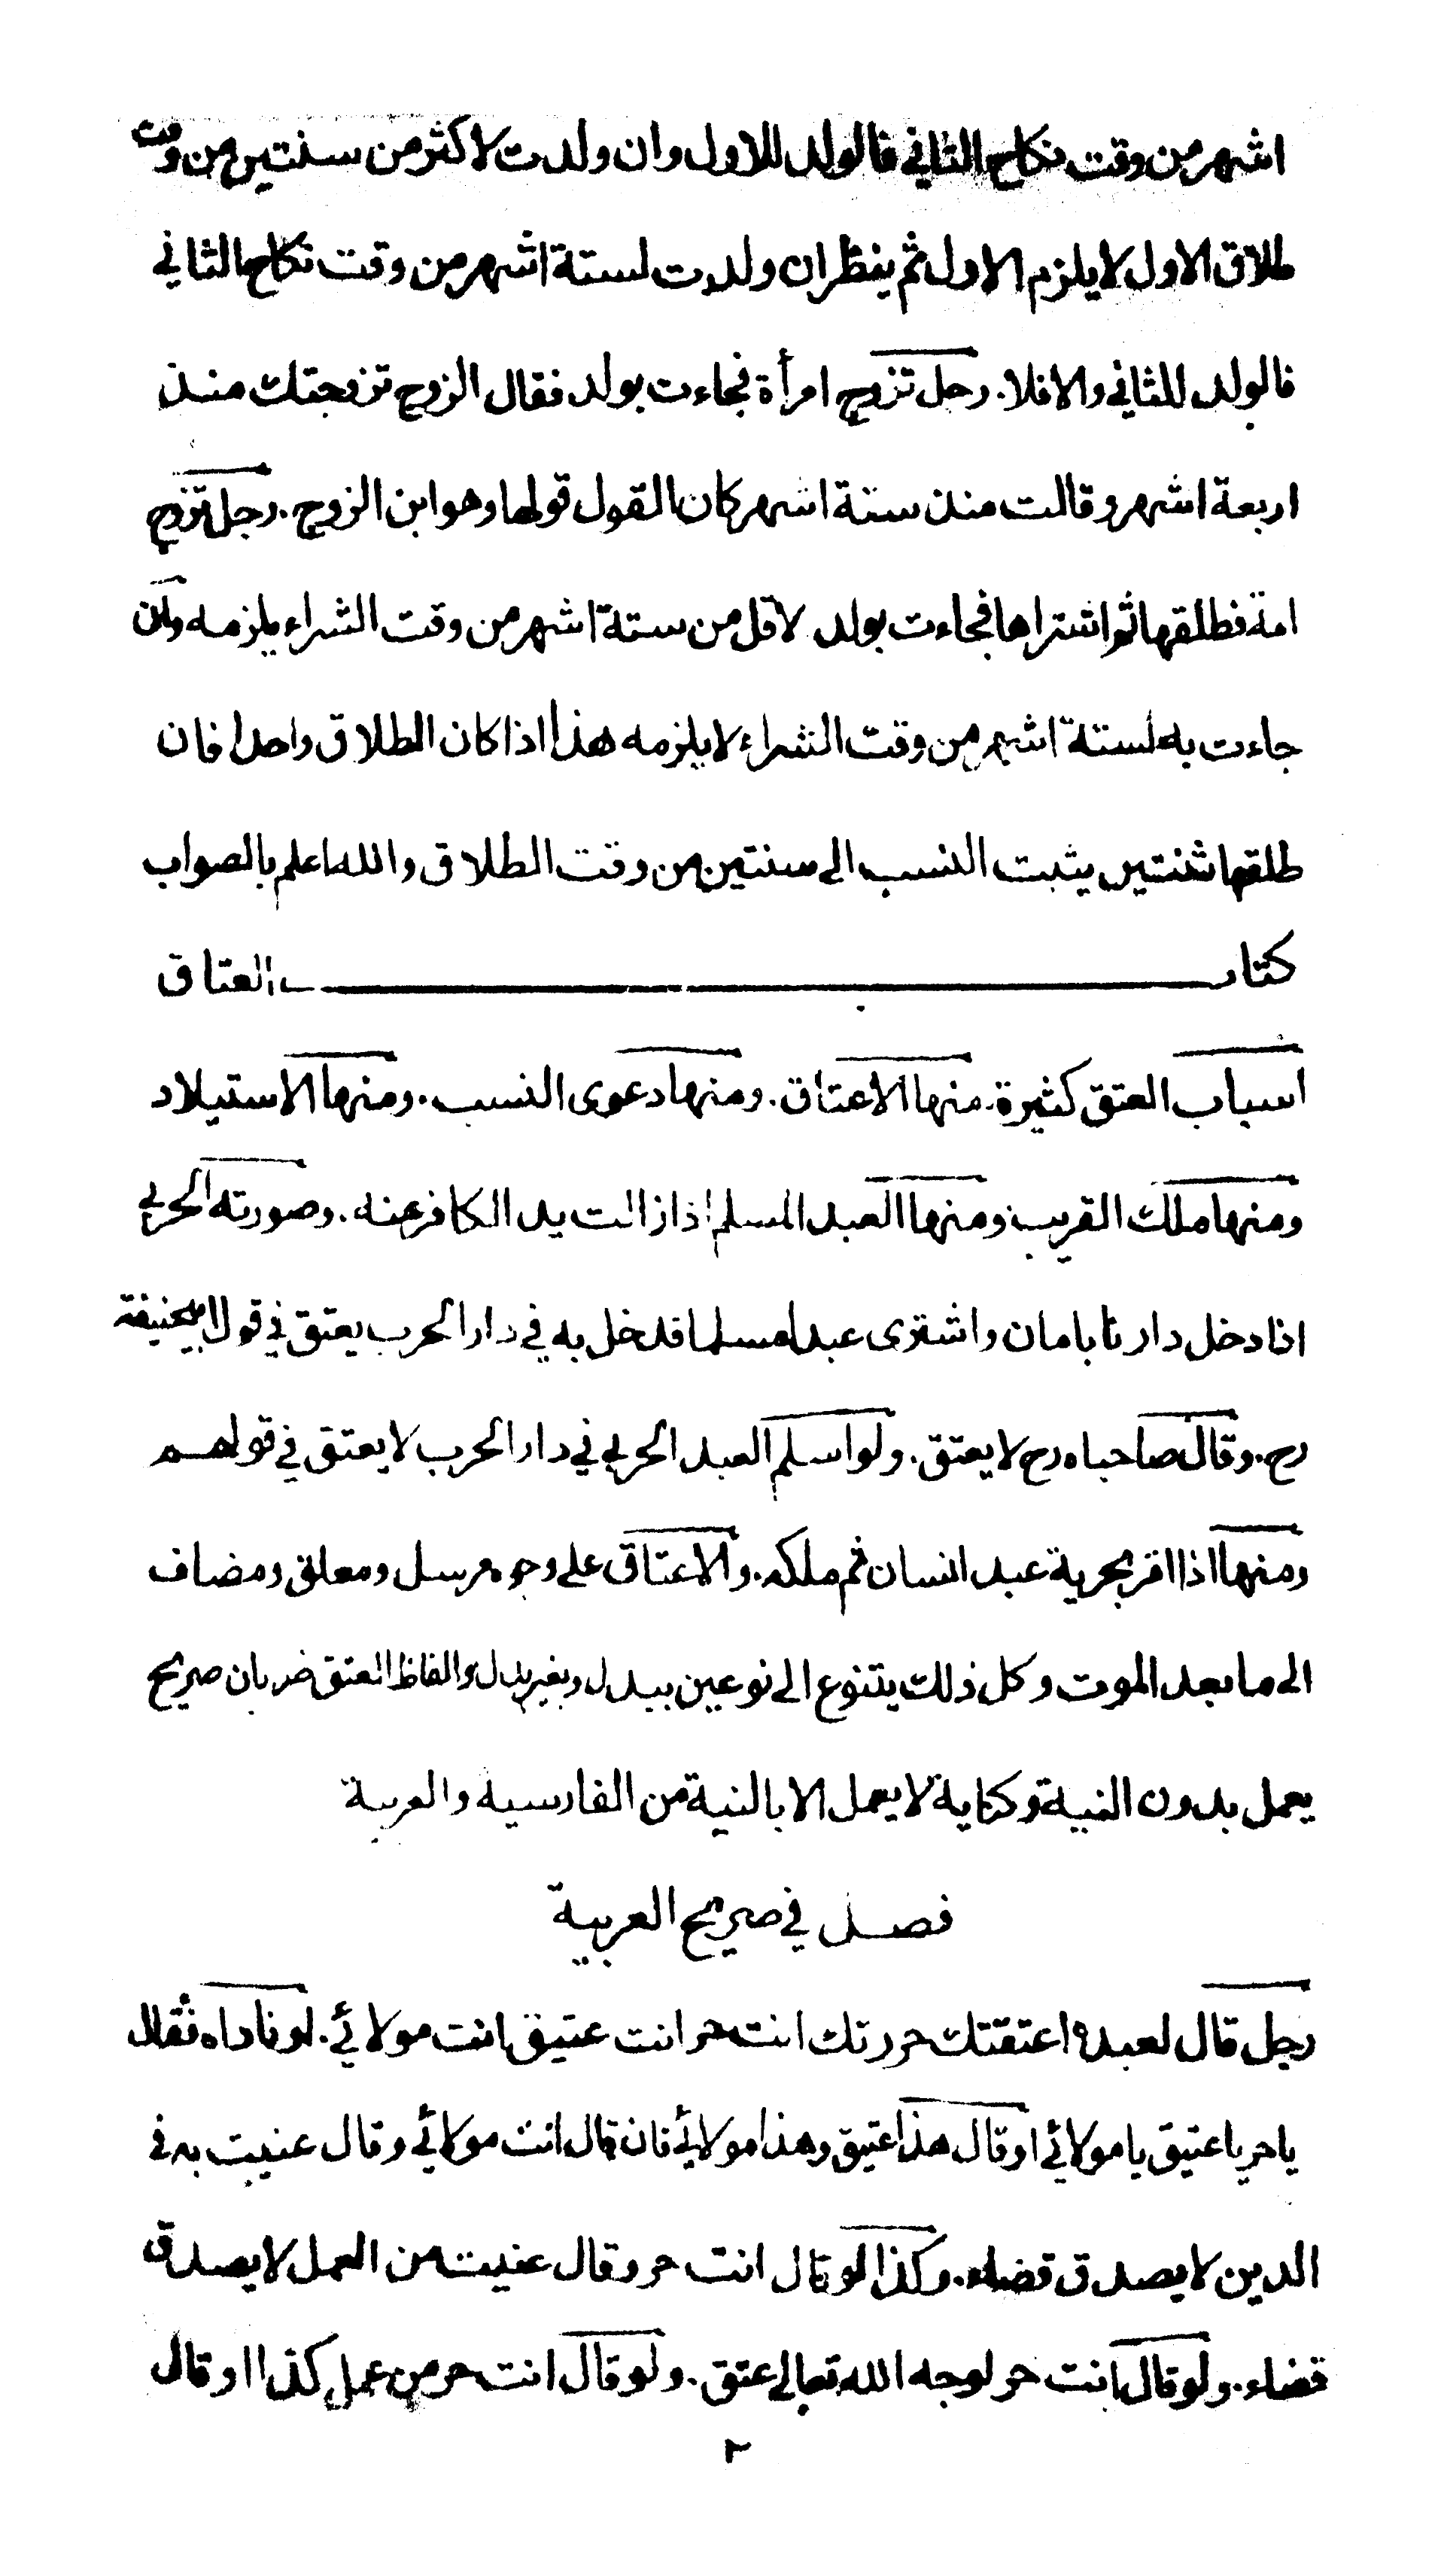 اشهر من وقت نكاح الثاني فالولد للاول وان ولدت لاكثر من سنتين من وقت
طلاق الاول لا يلزم الاول ثم ينظر ان ولدت لستة اشهر من وقت نكاح الثاني
فالولد للثاني والا فلا . رجل تزوج امرأة فجاءت بولد فقال الزوج تزوجتك منذ
اربعة اشهر وقالت منذ ستة اشهر كان القول قولها وهو ابن الزوج . رجل تزوج
امة فطلقها ثم اشتراها فجاءت بولد لاقل من ستة اشهر من وقت الشراء يلزمه وان
جاءت به لستة اشهر من وقت الشراء لا يلزمه هذا اذا كان الطلاق واحدا فان
طلقها ثنتين يثبت النسب الى سنتين من وقت الطلاق والله اعلم بالصواب
كتاب العتاق
اسباب العتق كثيرة . منها الاعتاق . ومنها دعوى النسب . ومنها الاستيلاد
ومنها ملك القريب . ومنها العبد المسلم اذا زالت يد الكافر عنه . وصورته الحربي
اذا دخل دارنا بامان واشترى عبدا مسلما فدخل به في دار الحرب يعتق في قول ابيحنيفة
رح . وقال صاحباه رح لا يعتق . ولو اسلم العبد الحربي في دار الحرب لا يعتق في قولهم
ومنها اذا اقر بحرية عبد انسان ثم ملكه . والاعتاق على وجوه مرسل ومعلق ومضاف
الى ما بعد الموت وكل ذلك يتنوع الى نوعين ببدل وبغير بدل والفاظ العتق ضربان صريح
يعمل بدون النية وكناية لا يعمل الا بالنية من الفارسية والعربية
فصل في صريح العربية
رجل قال لعبده اعتقتك حررتك انت حر انت عتيق انت مولائي . لو ناداه فقال
يا حر يا عتيق يا مولائي او قال هذا عتيق وهذا مولائي فان قال انت مولائي وقال عنيت به في
الدين لا يصدق قضاء . وكذا لو قال انت حر وقال عنيت من العمل لا يصدق
قضاء . ولو قال انت حر لوجه الله تعالى عتق . ولو قال انت حر من عمل كذا او قال
٢